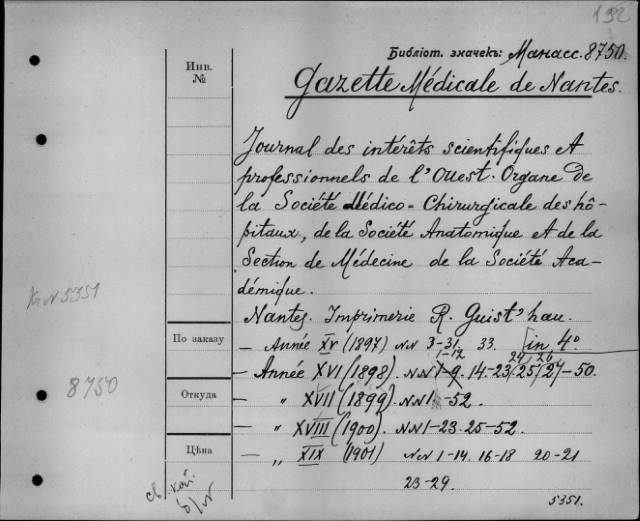 192
Библіот. значекъ: Манасс. 8750.
Инв.
№
Gazette Médicale de Nantes.
Journal des intérêts scientifiques et
professionnels de l'Ouest. Organe de
la Société Médico-Chirurgicale des hô-
pitaux, de la Société Anatomique et de la
Section de Médecine de la Société Aca-
démique.
5351
Nantes. Imprimerie R. Guist'hau.
По заказу
— Année XV (1897) NN 3-31. 33. in 4°
1-12 24 26
— Année XVI (1898). NN 1-9. 14-23/25/27-50.
8750
Откуда
— " XVII (1899). NN 1-52.
— " XVIII (1900). NN 1-23. 25-52.
Цѣна
— " XIX (1901) NN 1-14. 16-18 20-21
23-29.
5351.